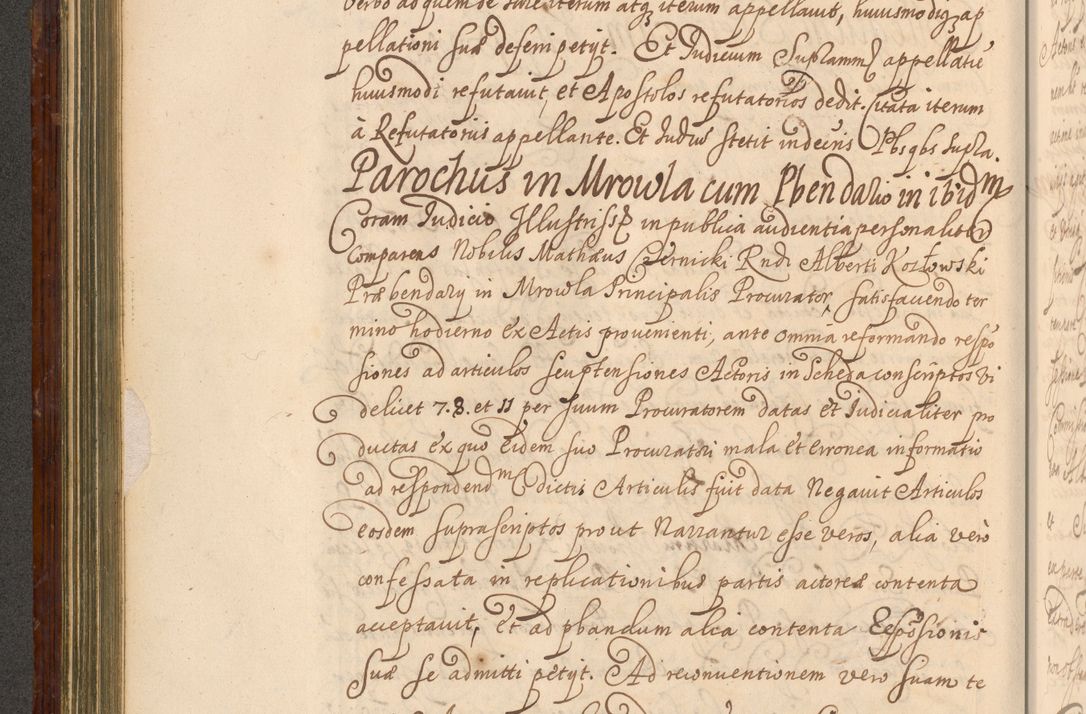 Verbo ad quem de Jure iterum atq3 iterum appellavit, huiusmodiq3 ap
pellationi suæ deferri petijt. Et Judicium Supramm appellatie
huiusmodi refutavit, et Apostolos refutatorios dedit. Citata iterum
à Refutatorijs appellante. Et Judiu stetit in decris Pbsqbs supra.
Parochus in Mrowla cum Pbendario in ibidm
Coram Judicio Illustriss in publica audientia personaliter
Comparens Nobilis Mathæus Czernicki Rndi Alberti Kozłowski
Præbendarij in Mrowla Principalis Procurator, satisfaciendo ter
mino hodierno ex Actis provenienti, ante omnia reformando respo
siones ad articulos seu ptensiones Actoris in Scheda conscriptos vi
delicet 7. 8. et 11 per suum Procuratorem datas et Judicialiter pro
ductas ex quo Eidem suo Procuratori mala et erronea informatio
ad respondendm dictis Articulis fuit data Negavit Articulos
eosdem suprascriptos prout Narrantur esse veros, alia verò
confessata in replicationibus partis actoreæ contenta
acceptavit, Et ad pbandum alia contenta Exposionis
suæ se admitti petijt. Ad reconventionem vero suam te